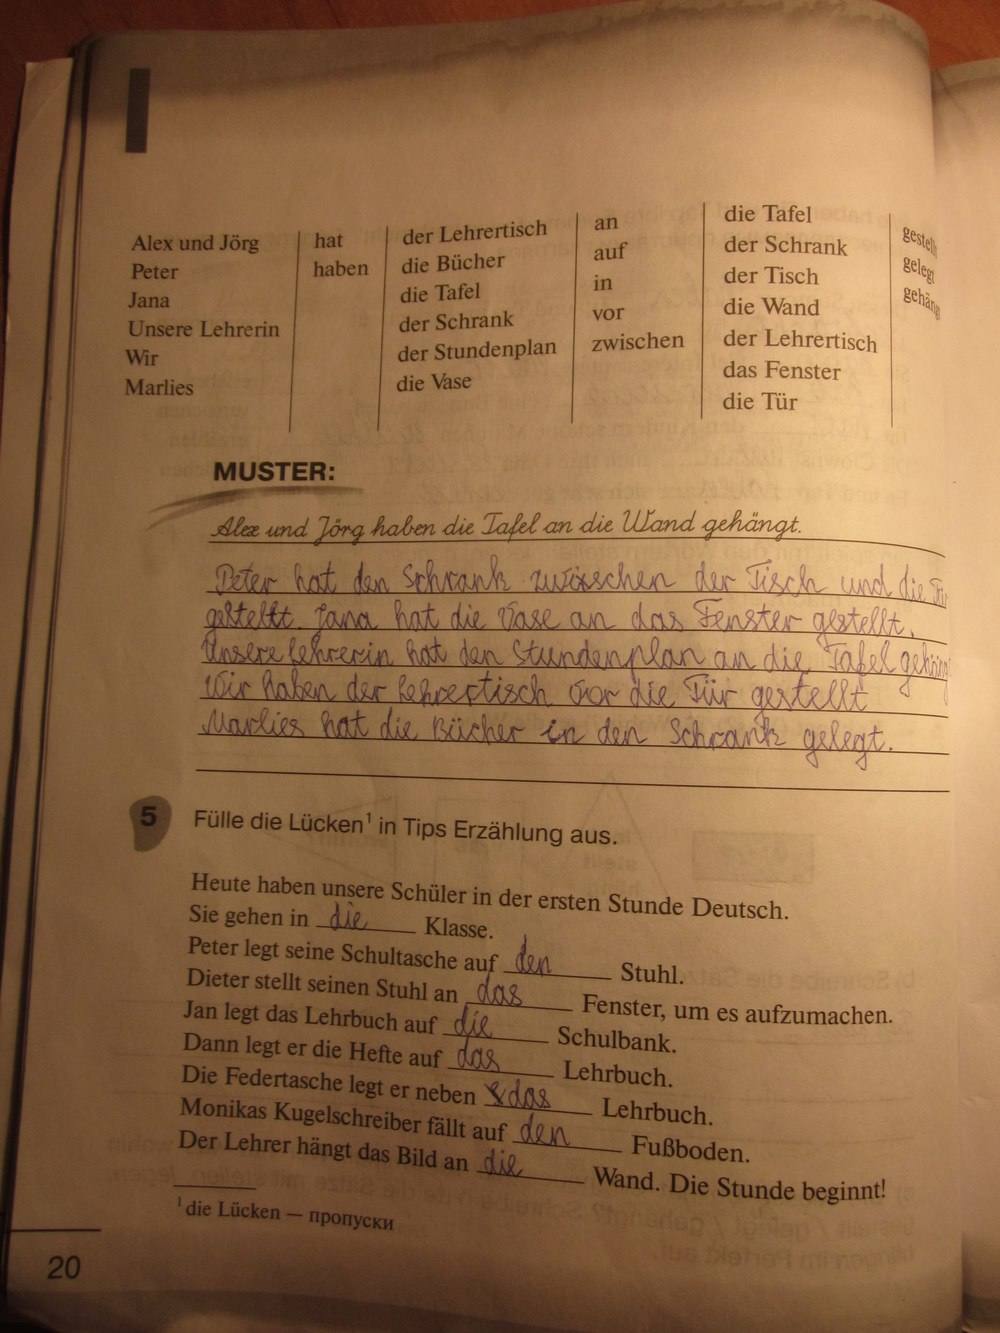 Alex und Jörg hat der Lehrertisch an die Tafel gestellt
Peter haben die Bücher auf der Schrank gelegt
Jana die Tafel in der Tisch gehängt
Unsere Lehrerin der Schrank vor die Wand
Wir der Stundenplan zwischen der Lehrertisch
Marlies die Vase das Fenster
die Tür
MUSTER:
Alex und Jörg haben die Tafel an die Wand gehängt.
Peter hat den Schrank zwischen der Tisch und die Tür
gestellt. Jana hat die Vase an das Fenster gestellt.
Unsere Lehrerin hat den Stundenplan an die Tafel gehäng
Wir haben der Lehrertisch vor die Tür gestellt
Marlies hat die Bücher in den Schrank gelegt.
5 Fülle die Lücken¹ in Tips Erzählung aus.
Heute haben unsere Schüler in der ersten Stunde Deutsch.
Sie gehen in die Klasse.
Peter legt seine Schultasche auf den Stuhl.
Dieter stellt seinen Stuhl an das Fenster, um es aufzumachen.
Jan legt das Lehrbuch auf die Schulbank.
Dann legt er die Hefte auf das Lehrbuch.
Die Federtasche legt er neben das Lehrbuch.
Monikas Kugelschreiber fällt auf den Fußboden.
Der Lehrer hängt das Bild an die Wand. Die Stunde beginnt!
¹ die Lücken — пропуски
20